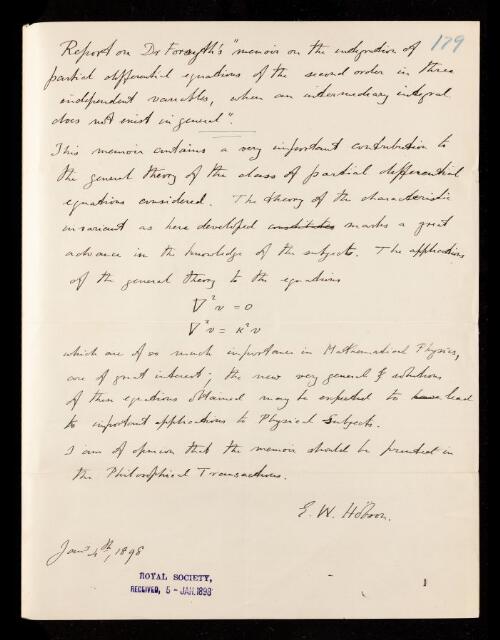 179
Report on Dr Forsyth's "memoir on the integration of
partial differential equations of the second order in three
independent variables, when an intermediary integral
does not exist in general".
This memoir contains a very important contribution to
the general theory of the class of partial differential
equations considered. The theory of the characteristic
invariant as here developed constitutes marks a great
advance in the knowledge of the subject. The applications
of the general theory to the equations
∇²v = 0
∇²v = κ²v
which are of so much importance in Mathematical Physics,
are of great interest; the new very general solutions
of these equations obtained may be expected to lead
to important applications to Physical Subjects.
I am of opinion that the memoir should be printed in
the Philosophical Transactions.
E. W. Hobson.
Jany 4th, 1898
ROYAL SOCIETY,
RECEIVED, 5 - JAN. 1898